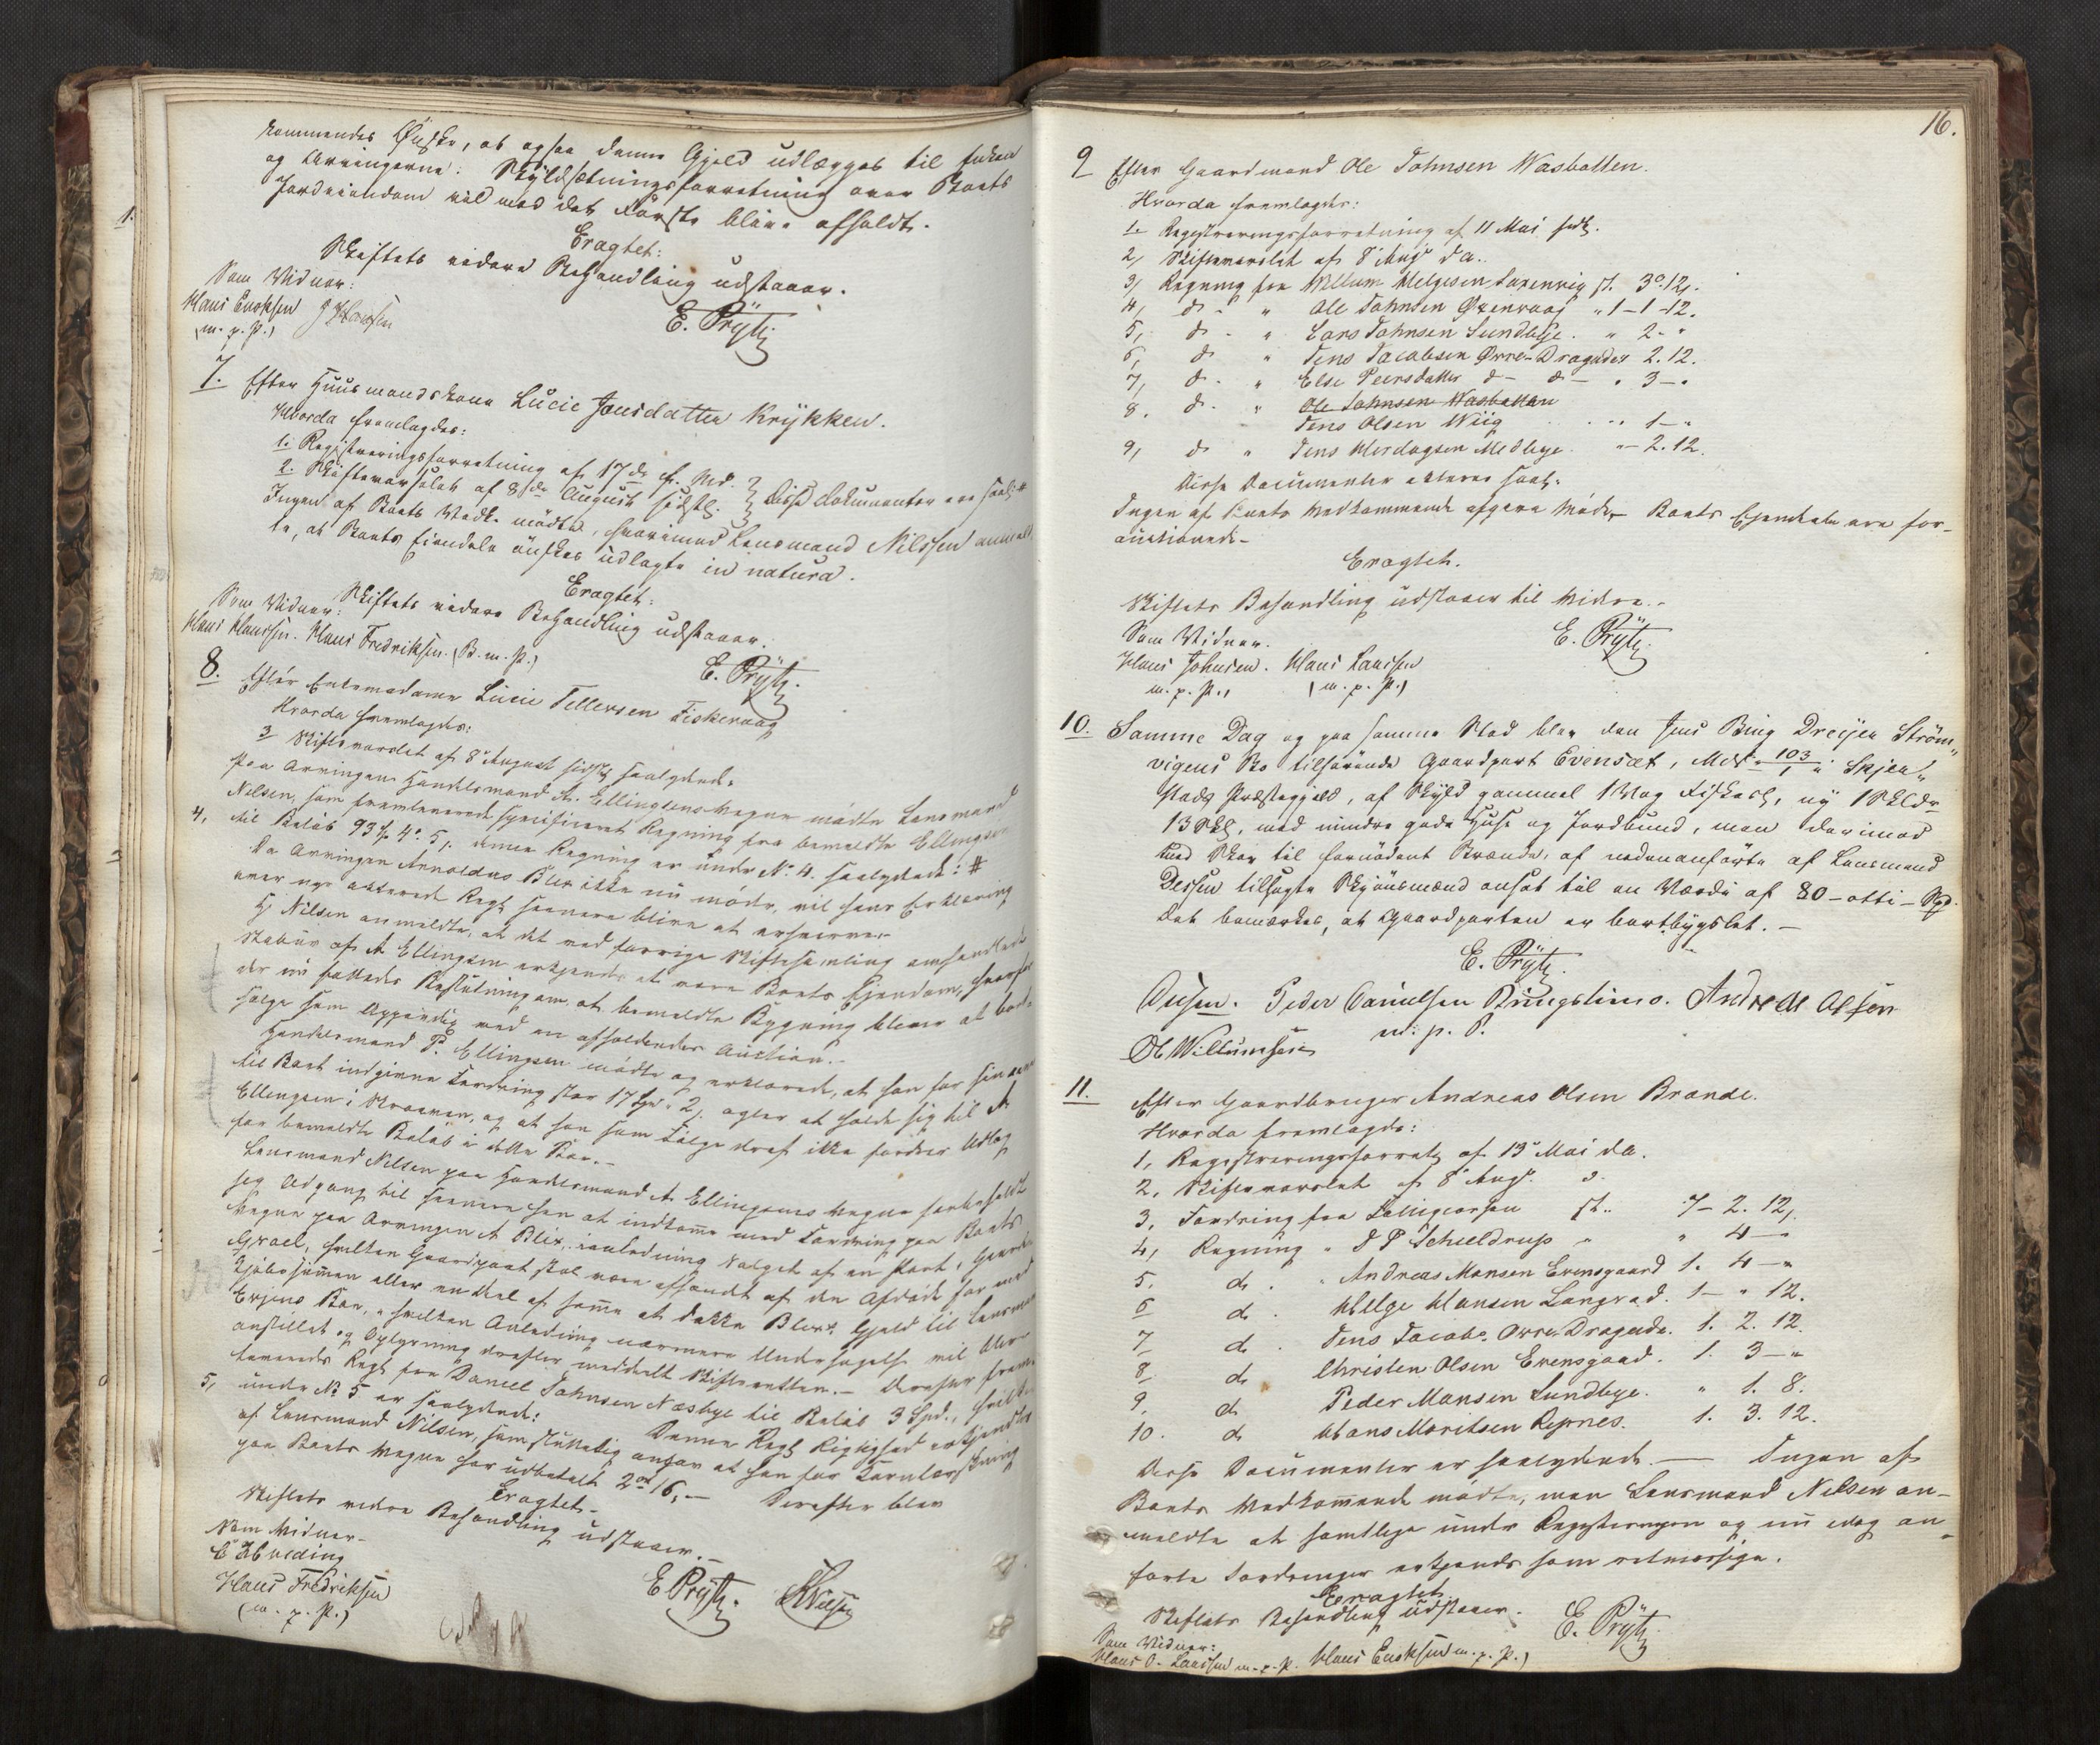 kommendes Ønske, at ogsaa denne Gjeld udlægges til Enken
og Arvingerne: Skyldsætningsforretning over Boets
Jordeiendom vil med det Første blive afholdt.
Eragtet:
Skiftets videre Behandling udstaaer.
Som Vidner:
Hans Enoksen J Hansen
(m. p. P.)
E. Prÿtz
7. Efter Huusmandskone Lucie Jensdatter Krykken.
Hvorda fremlagdes:
1. Registreringsforretning af 17de f. Md.
2. Skiftevarselet af 8de August sidstl. Disse Dokumenter ere saal: #
Ingen af Boets Vedk. mødte, hvorimod Lensmand Nilssen anmeld
te, at Boets Eiendele ønskes udlagte in natura.
Eragtet:
Skiftets videre Behandling udstaaer.
Som Vidner:
Hans Hanssen. Hans Fredriksen. (B. m. P.)
E. Prÿtz.
8. Efter Enkemadame Lucie Tellersen Fiskevaag
Hvorda fremlagdes:
3 Skiftevarslet af 8de August sidstl saalydende
Paa Arvingen Handelsmand A. Ellingsens Vegne mødte Lensmand
Nilsen, som fremleverede specificeret Regning fra bemeldte Ellingsen
4, til Beløb 93 4. 5, denne Regning er under No 4. saalydende: #
Da Arvingen Arnoldus Blix ikke nu møder, vil hans Erklæring
over nys ... Regl seenere blive at erhverve.
Hr Nilsen anmeldte, at det ved forrige Skiftesamling omhandlede
Stabur af A Ellingsen erkjendes at være Boets Ejendom, hvorfor
der nu fattedes Beslutning om, at bemeldte Bygning bliver at bort-
sælge som Appendix ved en afholdendes Auction.
Handelsmand P. Ellingsen mødte og erklærede, at han for sin
til Boet indgivne Fordring stor 17 Spd. 2, agter at holde sig til A
Ellingsen i Kraaven, og at han som Følge deraf ikke fordrer Udlæg
for bemeldte Beløb i dette Boe.
Lensmand Nilsen paa Handelsmand A. Ellingsens Vegne forbeholdt
sig Adgang til seenere hen at indkomme med Fordring paa Boets
Vegne paa Arvingen A Blix, i anledning Salget af en Part i Gaarden
Graae, hvilken Gaardpart skal være afhændt af den Afdøde for med
Kjøbesummen eller en Deel af samme at dække Blix's Gjæld til Lensmand
... Boe, i hvilken Anledning nærmere Undersøgelse vil blive
anstillet og Oplysning derefter meddelt Skifteretten. Derefter frem-
leveredes Regl fra Daniel Johnsen Næsbye til Beløb 3 Spd., hvilken
5, under No 5 er saalydende: Denne Regl Rigtighed erkjendtes
af Lensmand Nilsen, som sluttelig angav at han for Kornlærskning
paa Boets Vegne har udbetalt 2 ort 16, Derefter blev
Eragtet
Skiftets videre Behandling udstaaer.
Som Vidner
E Hveding
Hans Fredriksen
(m. p. P.)
E Prÿtz. Nilsen
16.
9 Efter Gaardmand Ole Johnsen Wasbotten.
Hvorda fremlagdes:
1. Registreringsforretning af 11 Mai sidstl.
2, Skiftevarslet af 8de Augs d.a.
3, Regning fra Willum Helgesen Laxenvig st. 3. 12,.
4, do " Ole Johnsen Øxenvaag " 1-1-12.
5, do " Lars Johnsen Sundbye. " 2 - "
6, do " Jens Jacobsen Øvre-Drageide 2. 12.
7, do " Else Peersdatter d- d- " 3 - "
8. do " Ole Johnsen Wasbotten
Jens Olsen Wiig " 1 - "
9, do " Jens Herdagsen Medbye " - 2. 12.
Disse Documenter acteres saal.
Ingen af Boets Vedkommende afgave Møde, Boets Ejendele ere for-
auctionerede.
Eragtet.
Skiftets Behandling udstaaer til Videre.
Som Vidner.
Hans Johnsen. Hans Larssen
m. p. P., (m. p. P.)
E. Prÿtz.
10. Samme Dag og paa samme Sted blev den Jens Bing Dreyer Strøm-
vigens Bo tilhørende Gaardpart Evensæt, Mat. 103/1 i Skjer-
stads Præstegjeld, af Skyld gammel 1 Vog Fiskesl, ny 1 Skldr
13 Skl, med mindre gode Huse og Jordbund, men derimod
med Skov til fornødent Brænde, af nedenanførte af Lensmand
Dessen tilsagte Skjønsmænd ansat til en Værdi af 80 - otti - Spd.
Det bemærkes, at Gaardparten er bortbygslet.
E. Prÿtz.
Dessen. Peder Danielsen Bringslimo. Andreas Olsen
m. p. P.
Ol Willumsen
11. Efter Gaardbruger Andreas Olsen Brande.
Hvorda fremlagdes:
1, Registreringsforretg af 13de Mai d.A.
2, Skiftevarslet af 8de Augs. d.
3, Fordring fra ... st. 7 - 2. 12,
4, Regning " D P Schieldrup " " 4 - "
5, do . " Andreas Monsen Evensgaard 1. 4 - "
6 do . Helge Hansen Langsæd. 1 - " 12.
7 do . Jens Jacobs. Øvre-Drageide. 1. 2. 12.
8 do Christen Olsen Evensgaard. 1. 3 - "
9. do Peder Monsen Sundbye. " 1. 8.
10. do Hans Moritsen Rypnes. 1. 3. 12.
Disse Documenter er saalydende. — Ingen af
Boets Vedkommende mødte, men Lensmand Nilsen an-
meldte at samtlige under Registreringen og nu idag an-
førte Fordringer erkjendes som retmæssige.
Eragtet
Skiftets Behandling udstaaer.
Som Vidner:
Hans O. Larssen m. p. P. Hans Enoksen m. p. P.)
E. Prÿtz.